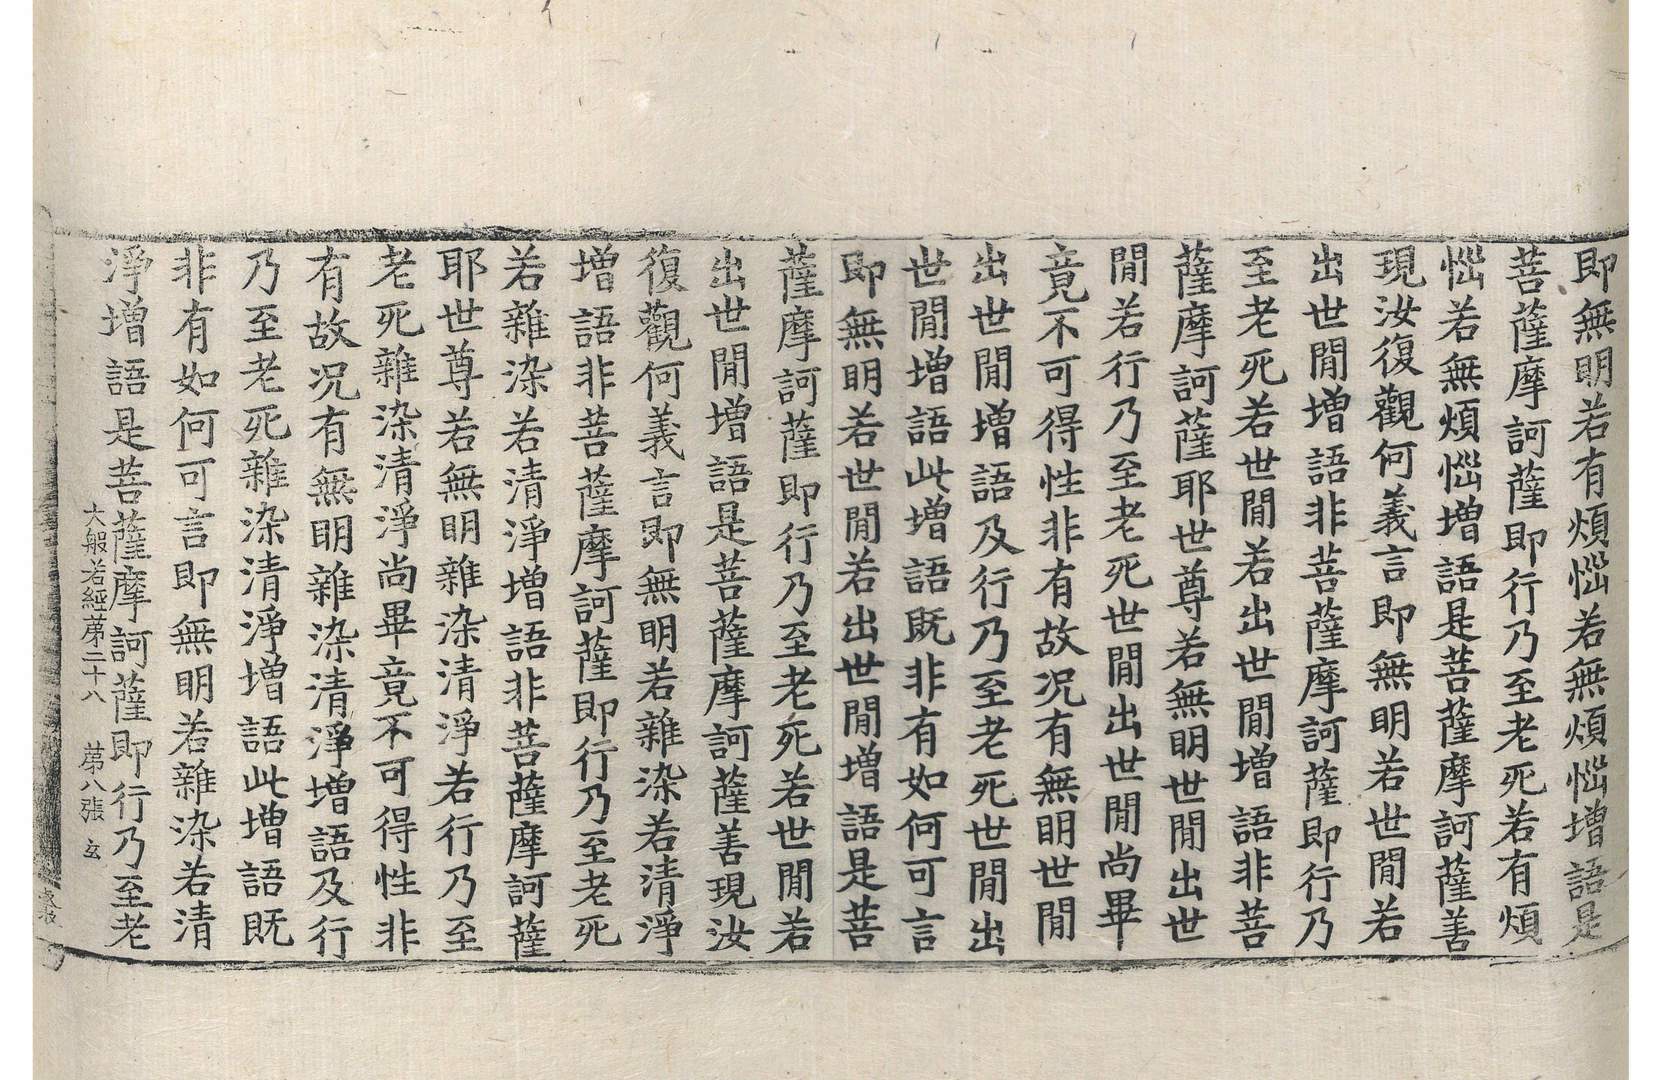 即無明若有煩惱若無煩惱增語是
菩薩摩訶薩即行乃至老死若有煩
惱若無煩惱增語是菩薩摩訶薩善
現汝復觀何義言即無明若世閒若
出世閒增語非菩薩摩訶薩即行乃
至老死若世閒若出世閒增語非菩
薩摩訶薩耶世尊若無明世閒出世
閒若行乃至老死世閒出世閒尚畢
竟不可得性非有故況有無明世閒
出世閒增語及行乃至老死世閒出
世閒增語此增語既非有如何可言
即無明若世閒若出世閒增語是菩
薩摩訶薩即行乃至老死若世閒若
出世閒增語是菩薩摩訶薩善現汝
復觀何義言即無明若雜染若清淨
增語非菩薩摩訶薩即行乃至老死
若雜染若清淨增語非菩薩摩訶薩
耶世尊若無明雜染清淨若行乃至
老死雜染清淨尚畢竟不可得性非
有故況有無明雜染清淨增語及行
乃至老死雜染清淨增語此增語既
非有如何可言即無明若雜染若清
淨增語是菩薩摩訶薩即行乃至老
大般若經苐二十八 苐八張 玄